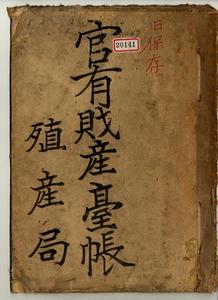 旧保存
20141
官有財産臺帳
殖産局